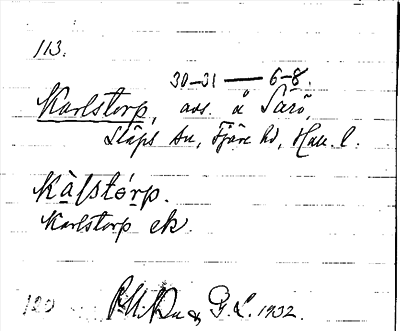 113.
30-31 — 6-8.
Karlstorp, avs. å Särö,
Släps sn, Fjäre hd, Hall. l.
Kàlstórp.
Karlstorp ek.
120 G. L. 1932.